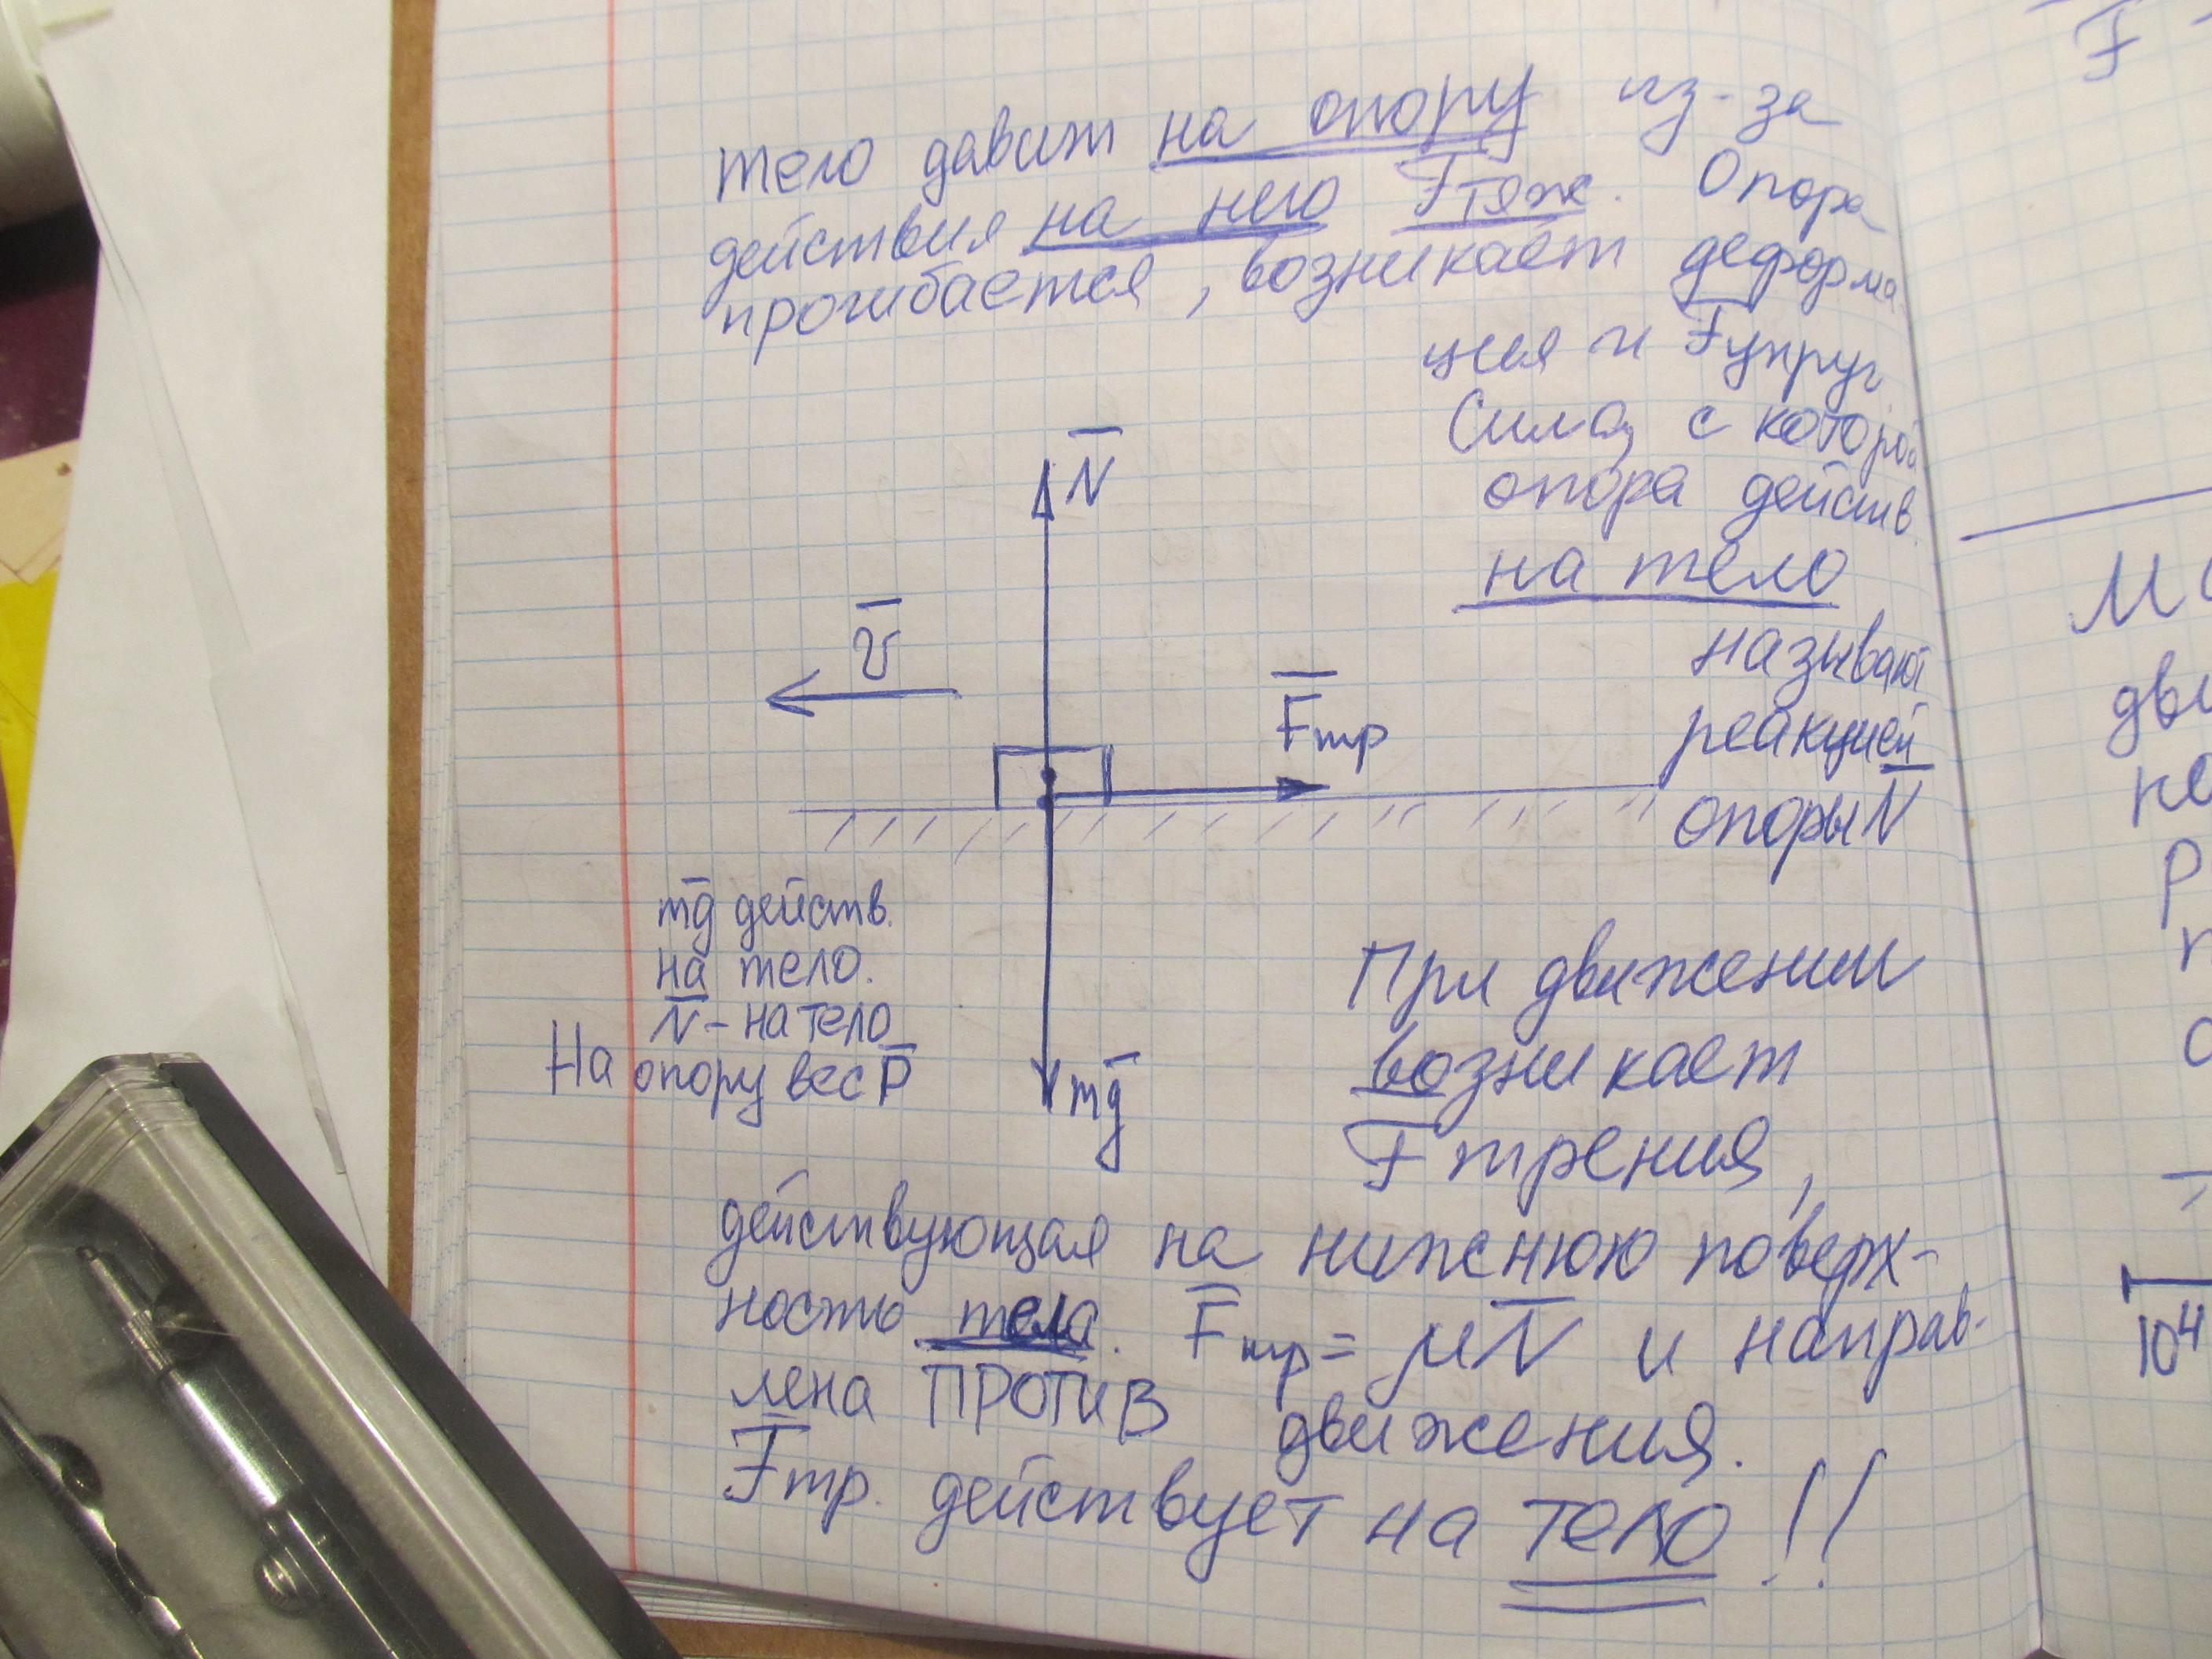 тело давит на опору из-за
действия на него F̅тяж. Опора
прогибается, возникает деформа
ция и F̅упруг.
Сила, с которой
опора действ.
на тело
называют
реакцией
опоры N̅
N̅
v̅
F̅тр
mg̅
mg̅ действ.
на тело.
N̅ - на тело
На опору вес P̅
При движении
возникает
F̅ трения,
действующая на нижнюю поверх-
ность тела. F̅тр = μN̅ и направ-
лена ПРОТИВ движения.
F̅тр. действует на ТЕЛО!!
F̅
10⁴